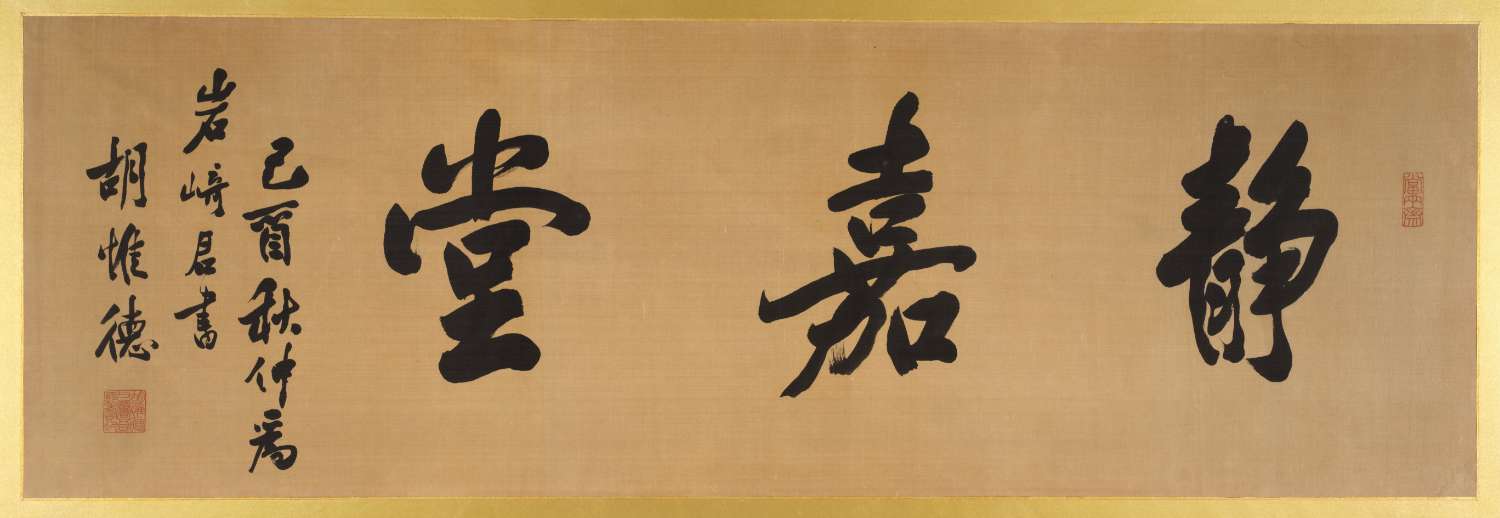 靜嘉堂
己酉秋仲為
岩﨑君書
胡惟德